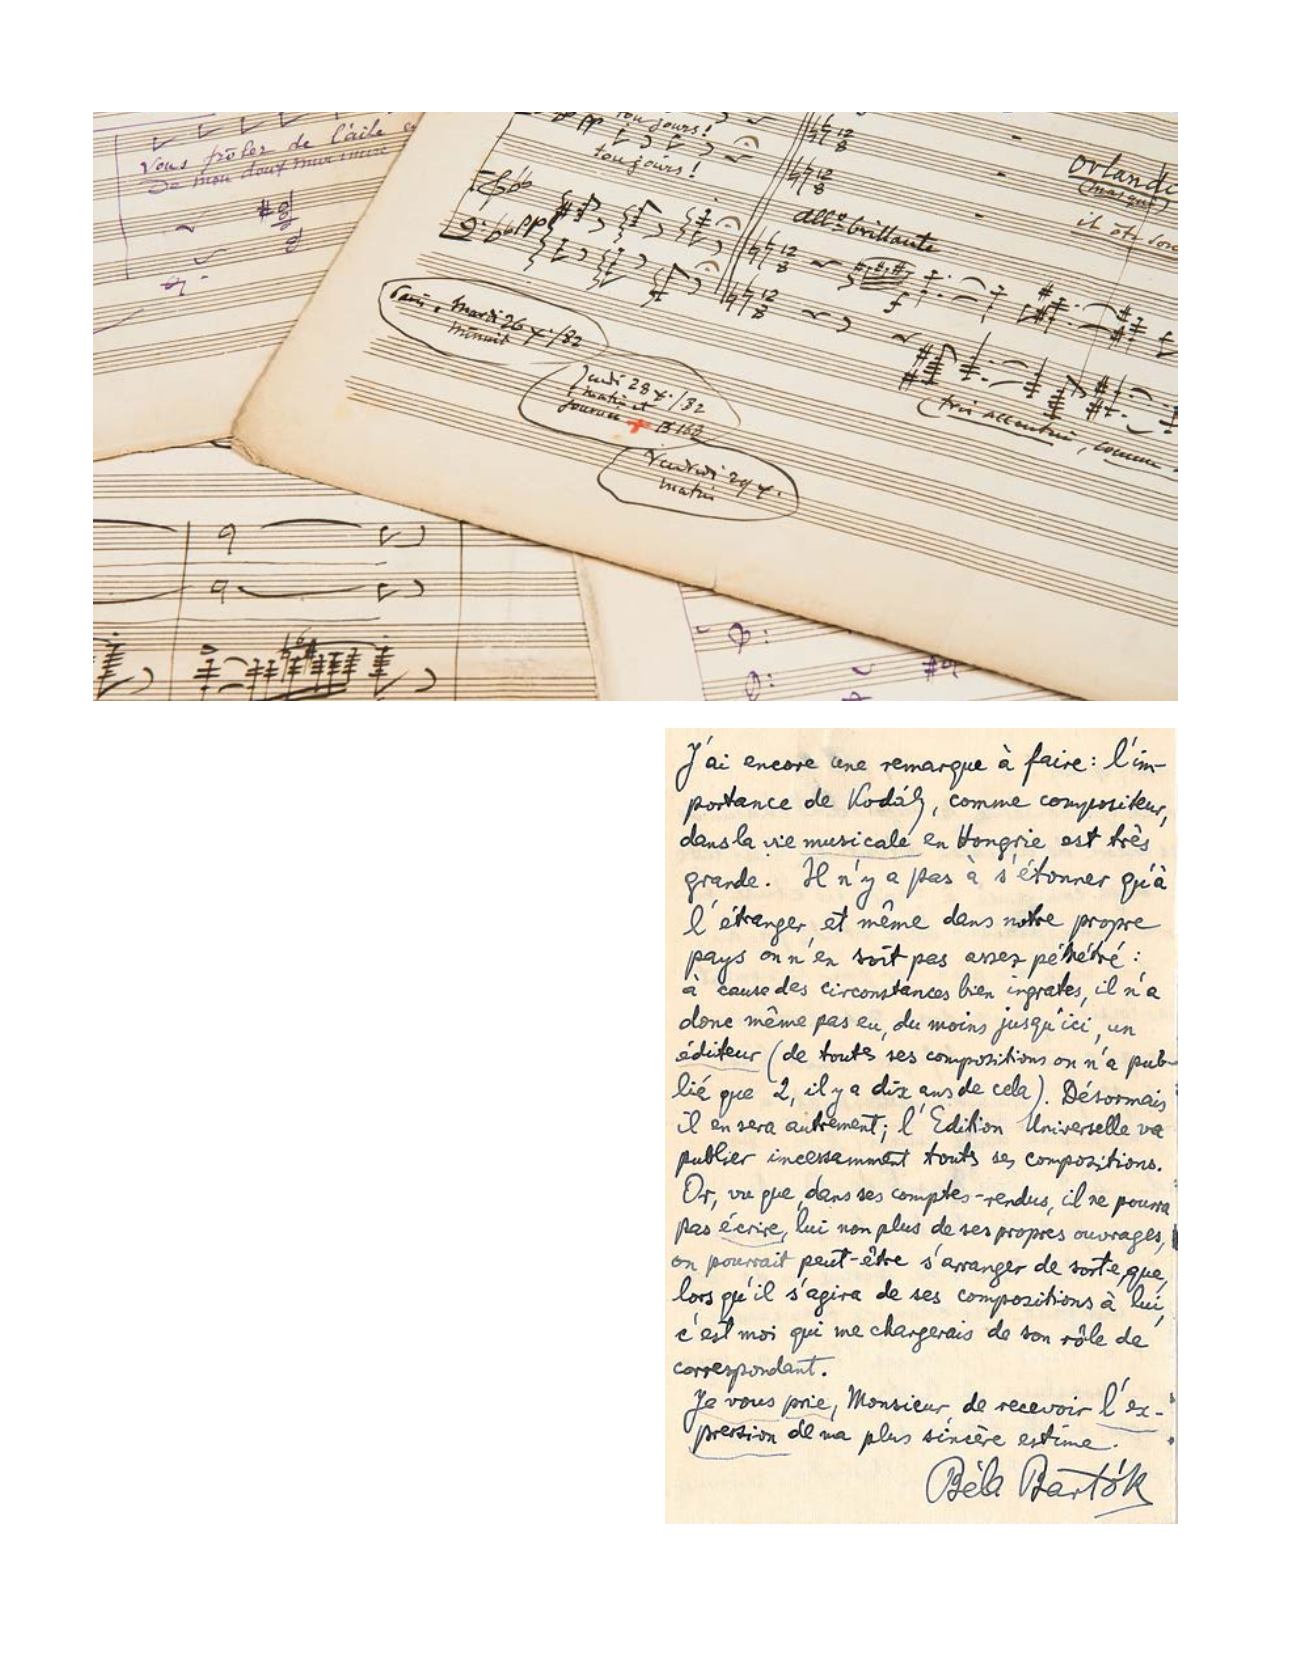 Vous frôler de l'aile
De mon doux murmure
toujours!
pp
toujours!
pp
12
8
12
8
all° brillante
12
8
12
8
f
Orlando
(masqué)
il ôte son
Paris, mardi 26 X./82
minuit
Jeudi 28 X./82
matin et
journée + B 162
Vendredi 29 X.
matin
(très accentué, comme
J'ai encore une remarque à faire: l'im-
portance de Kodály, comme compositeur,
dans la vie musicale en Hongrie est très
grande. Il n'y a pas à s'étonner qu'à
l'étranger, et même dans notre propre
pays on n'en soit pas assez pénétré :
à cause des circonstances bien ingrates, il n'a
donc même pas eu, du moins jusqu'ici, un
éditeur (de toutes ses compositions on n'a pub-
lié que 2, il y a dix ans de cela). Désormais
il en sera autrement; l'Edition Universelle va
publier incessamment touts ses compositions.
Or, vu que, dans ses comptes-rendus, il ne pourra
pas écrire, lui non plus de ses propres ouvrages,
on pourrait peut-être s'arranger de sorte, que,
lorsqu'il s'agira de ses compositions à lui,
c'est moi qui me chargerais de son rôle de
correspondant.
Je vous prie, Monsieur, de recevoir l'ex-
pression de ma plus sincère estime.
Béla Bartók